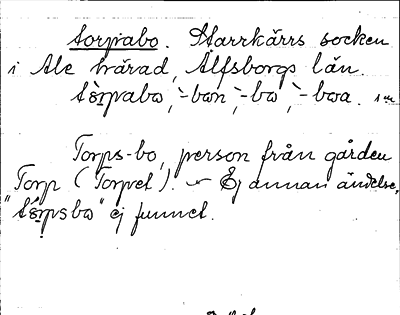 torpabo. Starrkärrs socken
i Ale härad, Älfsborgs län.
Torps-bo, person från gården
Torp (Torpet). Ej annan ändelse,
ej funnet.